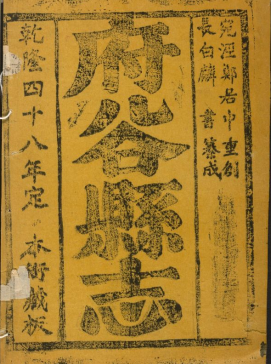 宛涇鄭居中重刻
長白麟書纂成
府谷縣志
乾隆四十八年定
本衙藏板